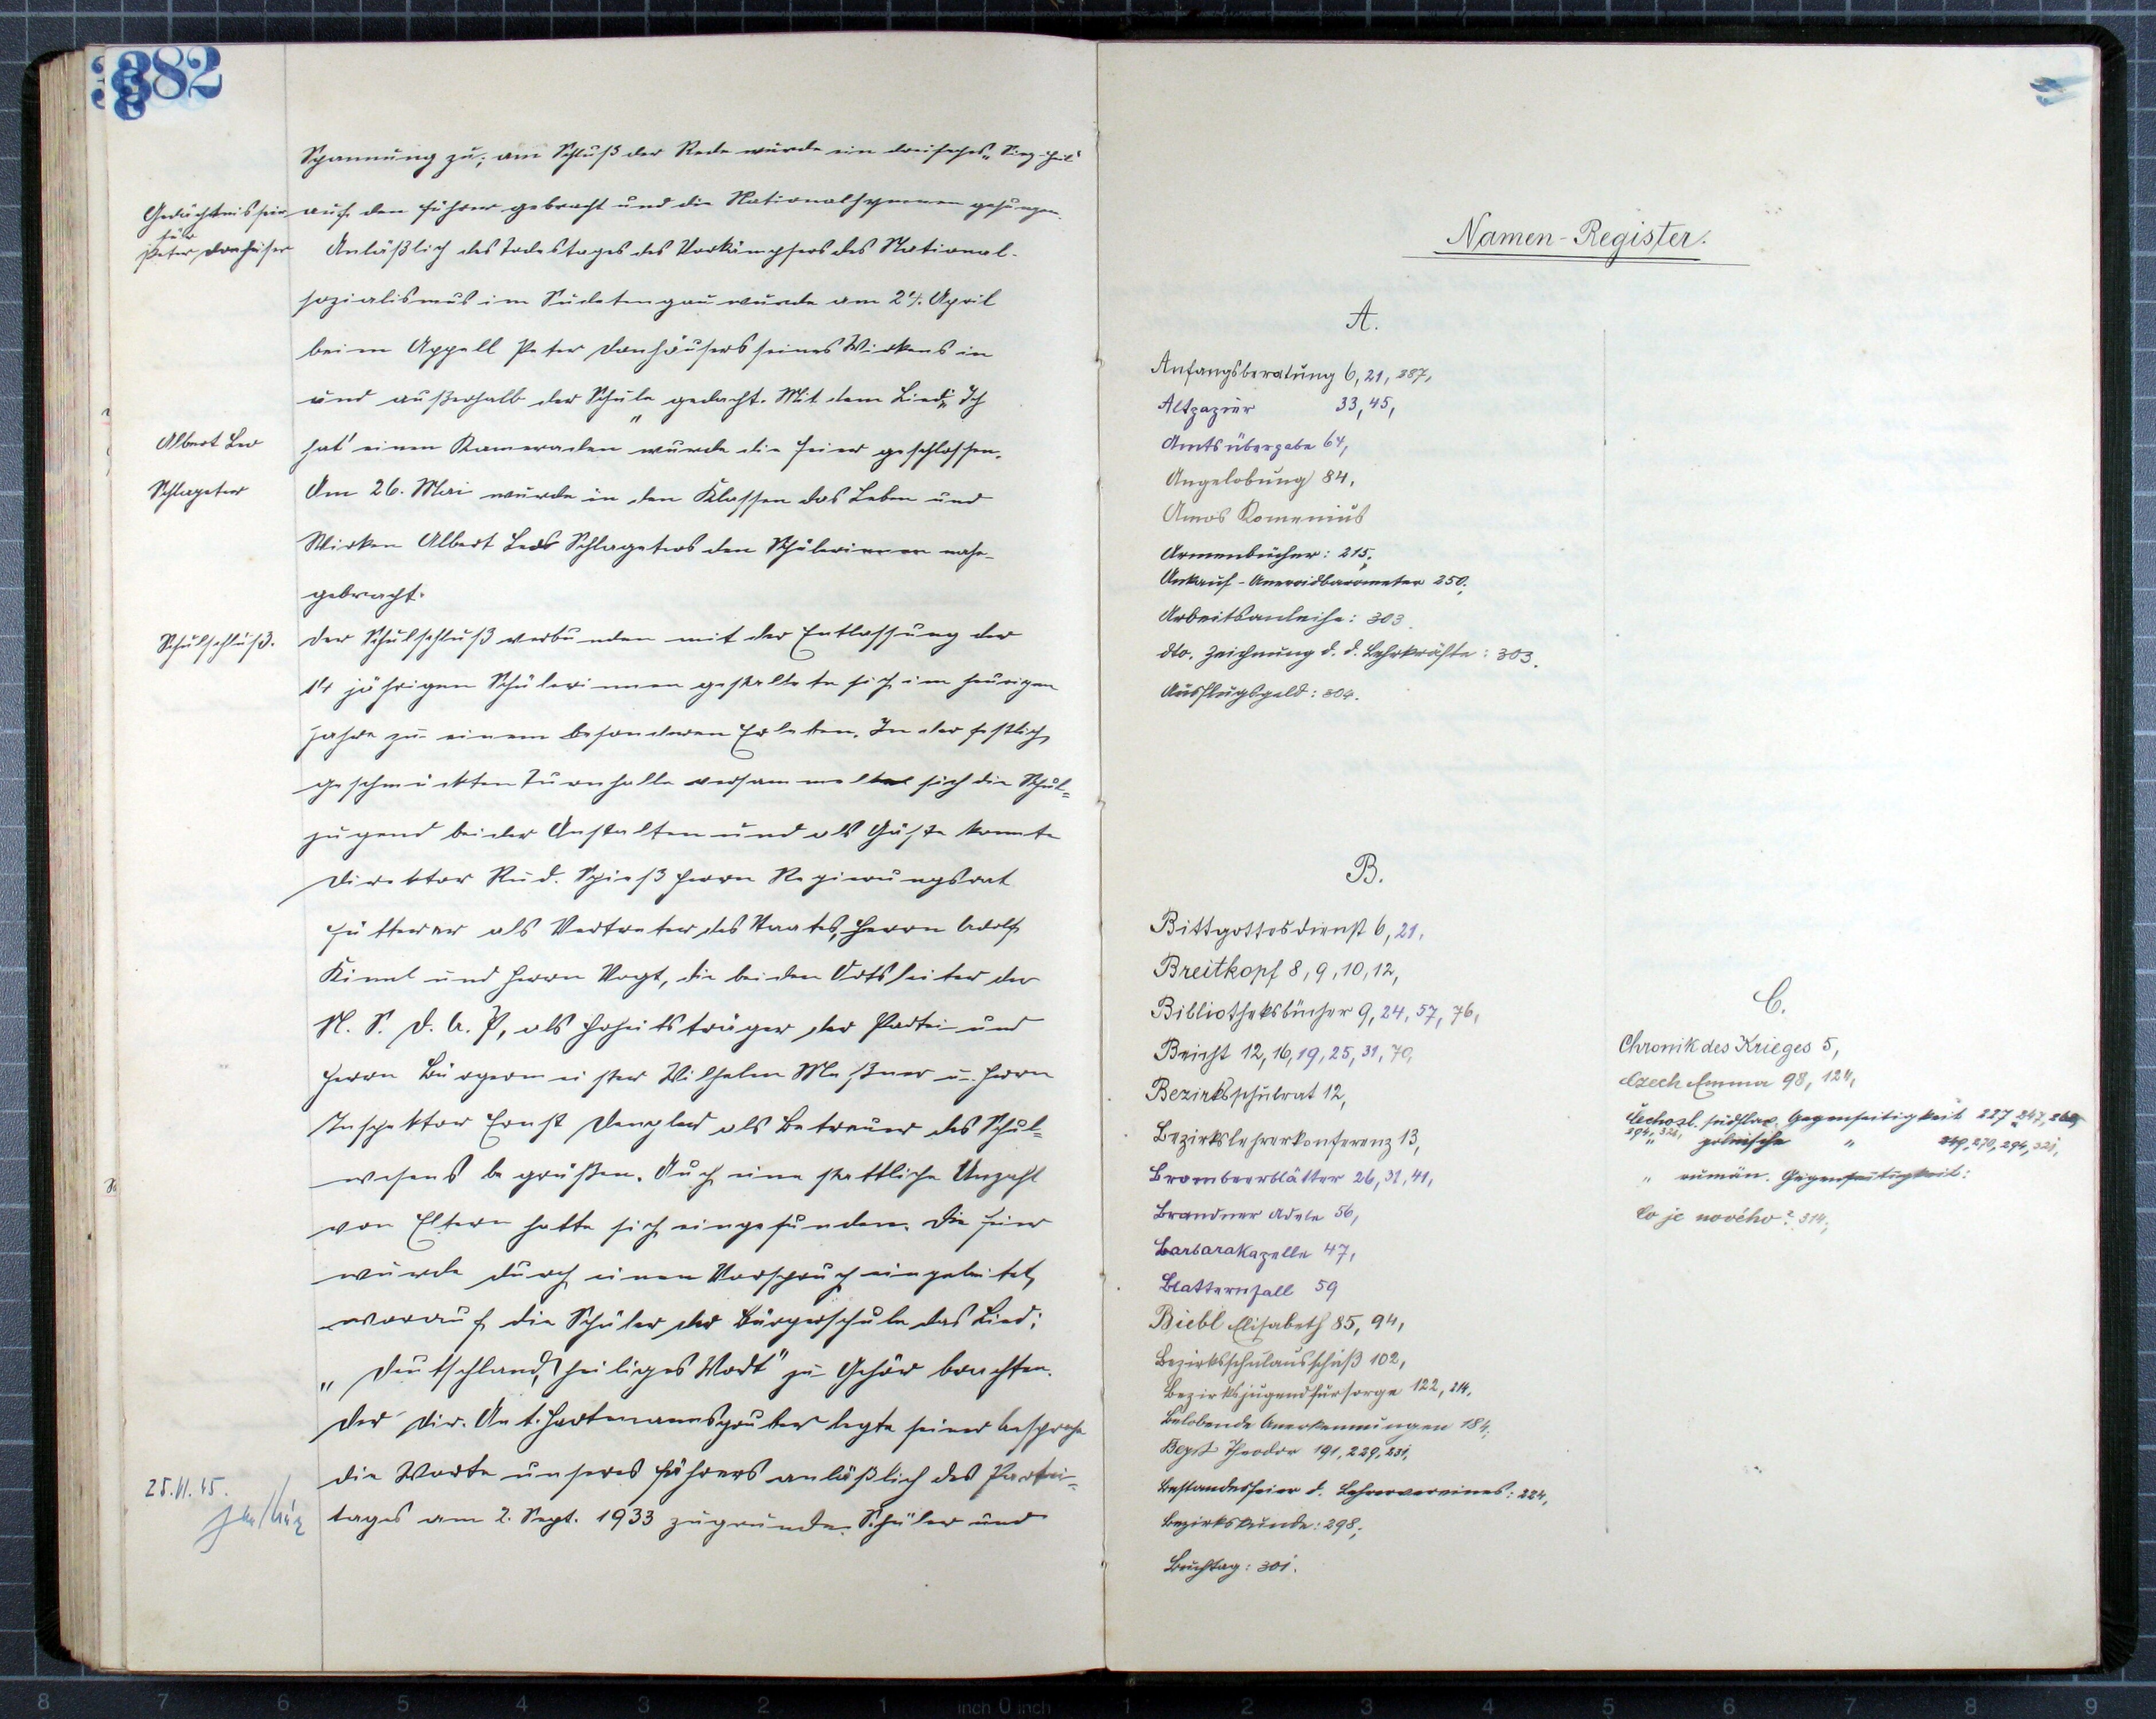 382
Spannung zu; am Schluß der Rede wurde ein dreifaches „Sieg-Heil“
Gedächtnisfeier
für
Peter Donhäuser
auf den Führer gebracht und die Nationalhymnen gesungen.
Anläßlich des Todestages des Vorkämpfers des National-
sozialismus im Sudetengau wurde am 21. April
beim Appell Peter Donhäusers seines Wirkens in
und außerhalb der Schule gedacht. Mit dem Lied: „Ich
Albert Leo
hat' einen Kameraden“ wurde die Feier geschlossen.
Schlageter
Am 26. Mai wurde in den Klassen das Leben und
Wirken Albert Leos Schlageters den Schülerinnen nahe-
gebracht.
Schulschluß.
Der Schulschluß verbunden mit der Entlassung der
14 jährigen Schülerinnen gestaltete sich im heurigen
Jahre zu einem besonderen Erleben. In der festlich
geschmückten Turnhalle versammelte sich die Schul=
jugend beider Anstalten und als Gäste konnte
Direktor Rud. Spieß Herrn Regierungsrat
Fütterer als Vertreter des Staates, Herrn Adolf
Kiml und Herrn Vogt, die beiden Ortsleiter der
N. S. D. A. P, als Hoheitsträger der Partei und
Herrn Bürgermeister Wilhelm Meßner u. Herrn
Inspektor Ernst Dengler als Betreuer des Schul=
wesens begrüßen. Auch eine stattliche Anzahl
von Eltern hatte sich eingefunden. Die Feier
wurde durch einen Vorspruch eingeleitet,
worauf die Schüler der Bürgerschule das Lied:
„Deutschland, heiliges Wort“ zu Gehör brachten.
Der Dir. Ant. Hartmannsgruber legte seiner Ansprache
die Worte unseres Führers anläßlich des Partei=
25.11.45.
tages am 2. Sept. 1933 zugrunde. Schüler und
Namen-Register.
A.
Anfangsberatung 6, 21, 287,
Altpapier 33, 45,
Amtsübergabe 64,
Angelobung 84,
Amos Komenius
Armenbücher: 215;
Ankauf - Aneroidbarometer 250;
Arbeitsanleihe: 303.
dto. Zeichnung d. d. Lehrkräfte: 303.
Ausflugsgeld: 304.
B.
Bittgottesdienst 6, 21,
Breitkopf 8, 9, 10, 12,
Bibliotheksbücher 9, 24, 57, 76,
Beicht 12, 16, 19, 25, 31, 70,
Bezirksschulrat 12,
Bezirkslehrerkonferenz 13,
Brombeerblätter 26, 31, 41,
Brandner Adele 56,
Barbarakapelle 47,
Blatternfall 59
Biebl Elisabeth 85, 94,
Bezirksschulausschuß 102,
Bezirksjugendfürsorge 122, 214,
Belobende Anerkennungen 184;
Theodor 191, 229, 231,
Bestandesfeier d. Lehrervereines: 224,
Bezirkskunde: 298;
Buchtag: 301.
C.
Chronik des Krieges 5,
Czech Emma 98, 124,
Čechosl. südslav. Gegenseitigkeit 227, 247, 269,
294, 321,
" polnische " 270, 294, 321,
" rumän. Gegenseitigkeit:
Co je nového? 314,